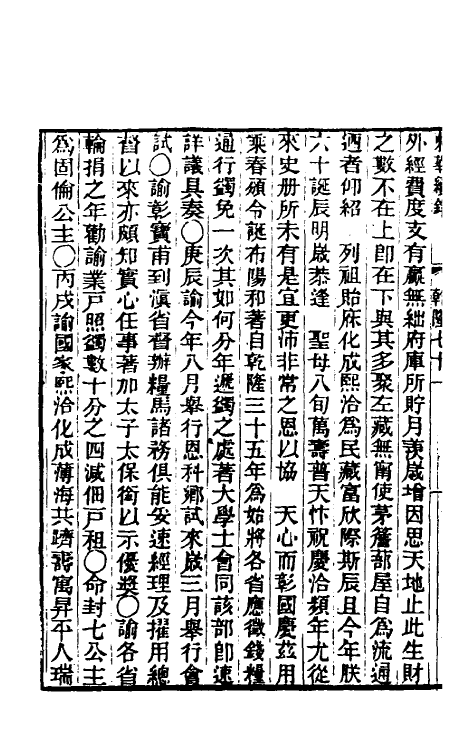 東華續錄 乾隆七十一
外經費度支有贏無絀府庫所貯月羨嵗增因思天地止此生財
之數不在上卽在下與其多聚左藏無甯使茅簷蔀屋自爲流通
迺者仰紹 列祖貽庥化成熙洽爲民藏富欣際斯辰且今年朕
六十誕辰明嵗恭逢 聖母八旬萬壽普天忭祝慶洽頻年尤從
來史册所未有是宜更沛非常之恩以協 天心而彰國慶茲用
乘春頒令誕布陽和著自乾隆三十五年爲始將各省應徵錢糧
通行蠲免一次其如何分年遞蠲之處著大學士會同該部卽速
詳議具奏○庚辰諭今年八月舉行恩科鄉試來嵗三月舉行會
試○諭彰寶甫到滇省督辦糧馬諸務俱能妥速經理及擢用總
督以來亦頗知實心任事著加太子太保銜以示優獎○諭各省
輪捐之年勸諭業戶照蠲數十分之四減佃戶租○命封七公主
爲固倫公主○丙戌諭國家熙洽化成薄海共躋壽寓昇平人瑞